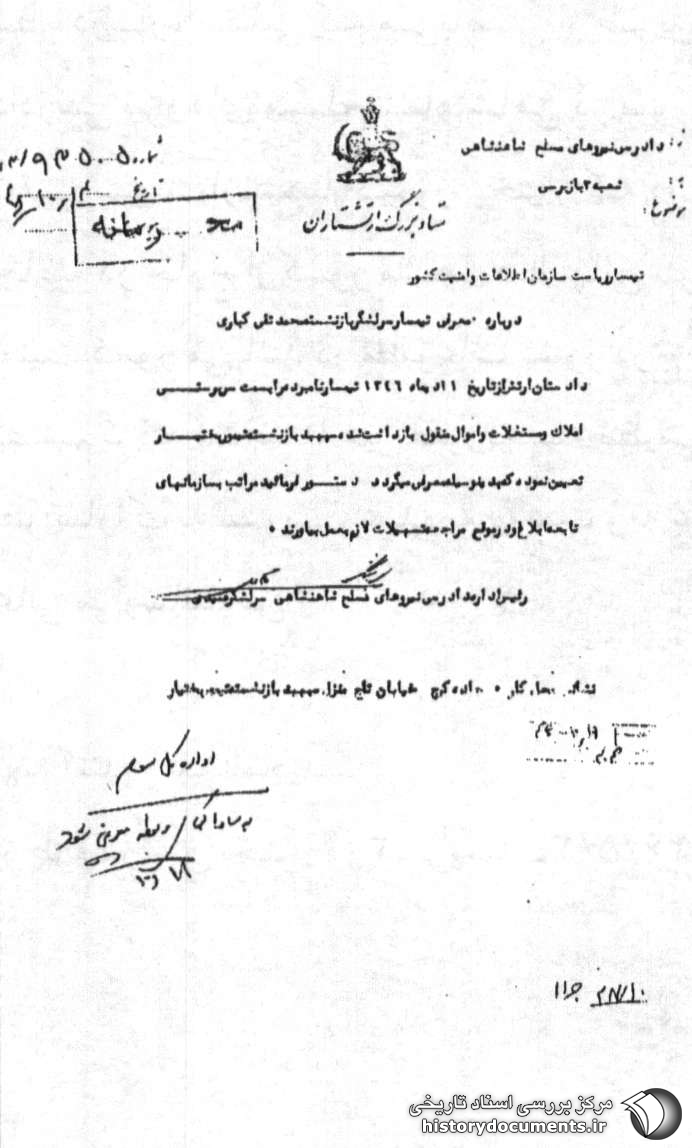 دادرسی نیروهای مسلح شاهنشاهی
شعبه ۲ بازپرسی
موضوع:
شماره
تاریخ
محرمانه
ستاد بزرگ ارتشتاران
تیمسار ریاست سازمان اطلاعات و امنیت کشور
درباره معرفی تیمسار سرلشگر بازنشسته محمد تقی کباری
دادستان ارتش از تاریخ ۱۱ دیماه ۱۳۴۶ تیمسار نامبرده را بسمت سرپرستی
املاک و مستغلات و اموال منقول بازداشت شده سپهبد بازنشسته تیمور بختیار
تعیین نموده که بدینوسیله معرفی میگردد دستور فرمائید مراتب بسازمانهای
تابعه ابلاغ و در موقع مراجعه تسهیلات لازم بعمل بیاورند ۰
رئیس اداره دادرسی نیروهای مسلح شاهنشاهی سرلشگر
نشانی محل کار ۰ جاده کرج خیابان تاج منزل سپهبد بازنشسته تیمور بختیار
اداره کل سوم
شود
مرکز بررسی اسناد تاریخی
historydocuments.ir